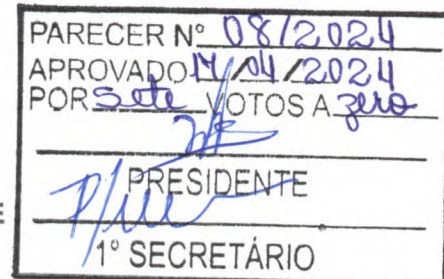 PARECER Nº 08/2024
APROVADO 17/04/2024
POR sete VOTOS A zero
PRESIDENTE
1º SECRETÁRIO